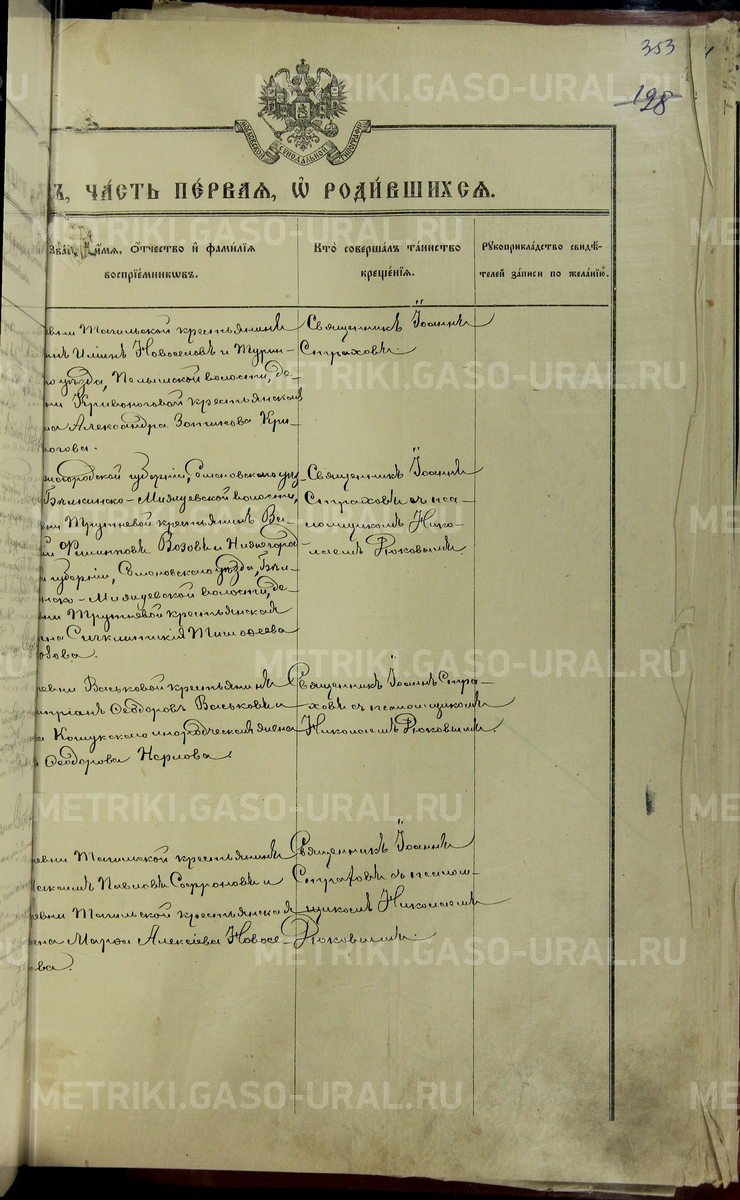 353
198
МОСКОВСКОЙ СѴНОДАЛЬНОЙ ТИПОГРАФІИ
ЧА́СТЬ ПЕ́РВАЯ, Ѽ РОДИ́ВШИХСЯ.
Зва́нїе, и҆́мя, ѻ҆́тчество и҆ фами́лїя
воспрїе́мникѡвъ.
Кто̀ соверша́лъ та́инство
креще́нїя.
Рꙋкоприкла́дство свидѣ́-
телей за́писи по жела́нїю.
евни Тагильской крестьянинъ
Илiинъ Новоселовъ и Турин-
уѣзда, Пелымской волости, де-
Кривоноговой крестьянская
Александра Зотикова Кри-
ногова.
Священникъ Іоаннъ
Страховъ.
жегородской губерніи, Семеновского уѣз
Бѣлкинско-Мияуевской волости,
Трутневой крестьянинъ Ва-
Филипповъ Возовъ и Нижегород
губерніи, Семеновского уѣзда, Бѣл-
нско-Мияуевской волости, де-
Трутневой крестьянская
Сигклитикія Тимофеева
озова.
Священникъ Іоаннъ
Страховъ съ пса-
ломщикомъ Нико-
лаемъ Рюковымъ.
ревни Васьковой крестьянинъ
Ѳеодоровъ Васьковъ и
Кошукского инородческая жена
Ѳеодорова Нермова.
Священникъ Іоаннъ Стра-
ховъ съ псаломщикомъ
Николаемъ Рюковымъ.
евни Тагильской крестьянинъ
Павловъ Софроновъ и
евни Тагильской крестьянская
жена Марѳа Алексіева Новосе-
ова.
Священникъ Іоаннъ
Страховъ съ псалом-
щикомъ Николаемъ
Рюковымъ.
METRIKI.GASO-URAL.RU